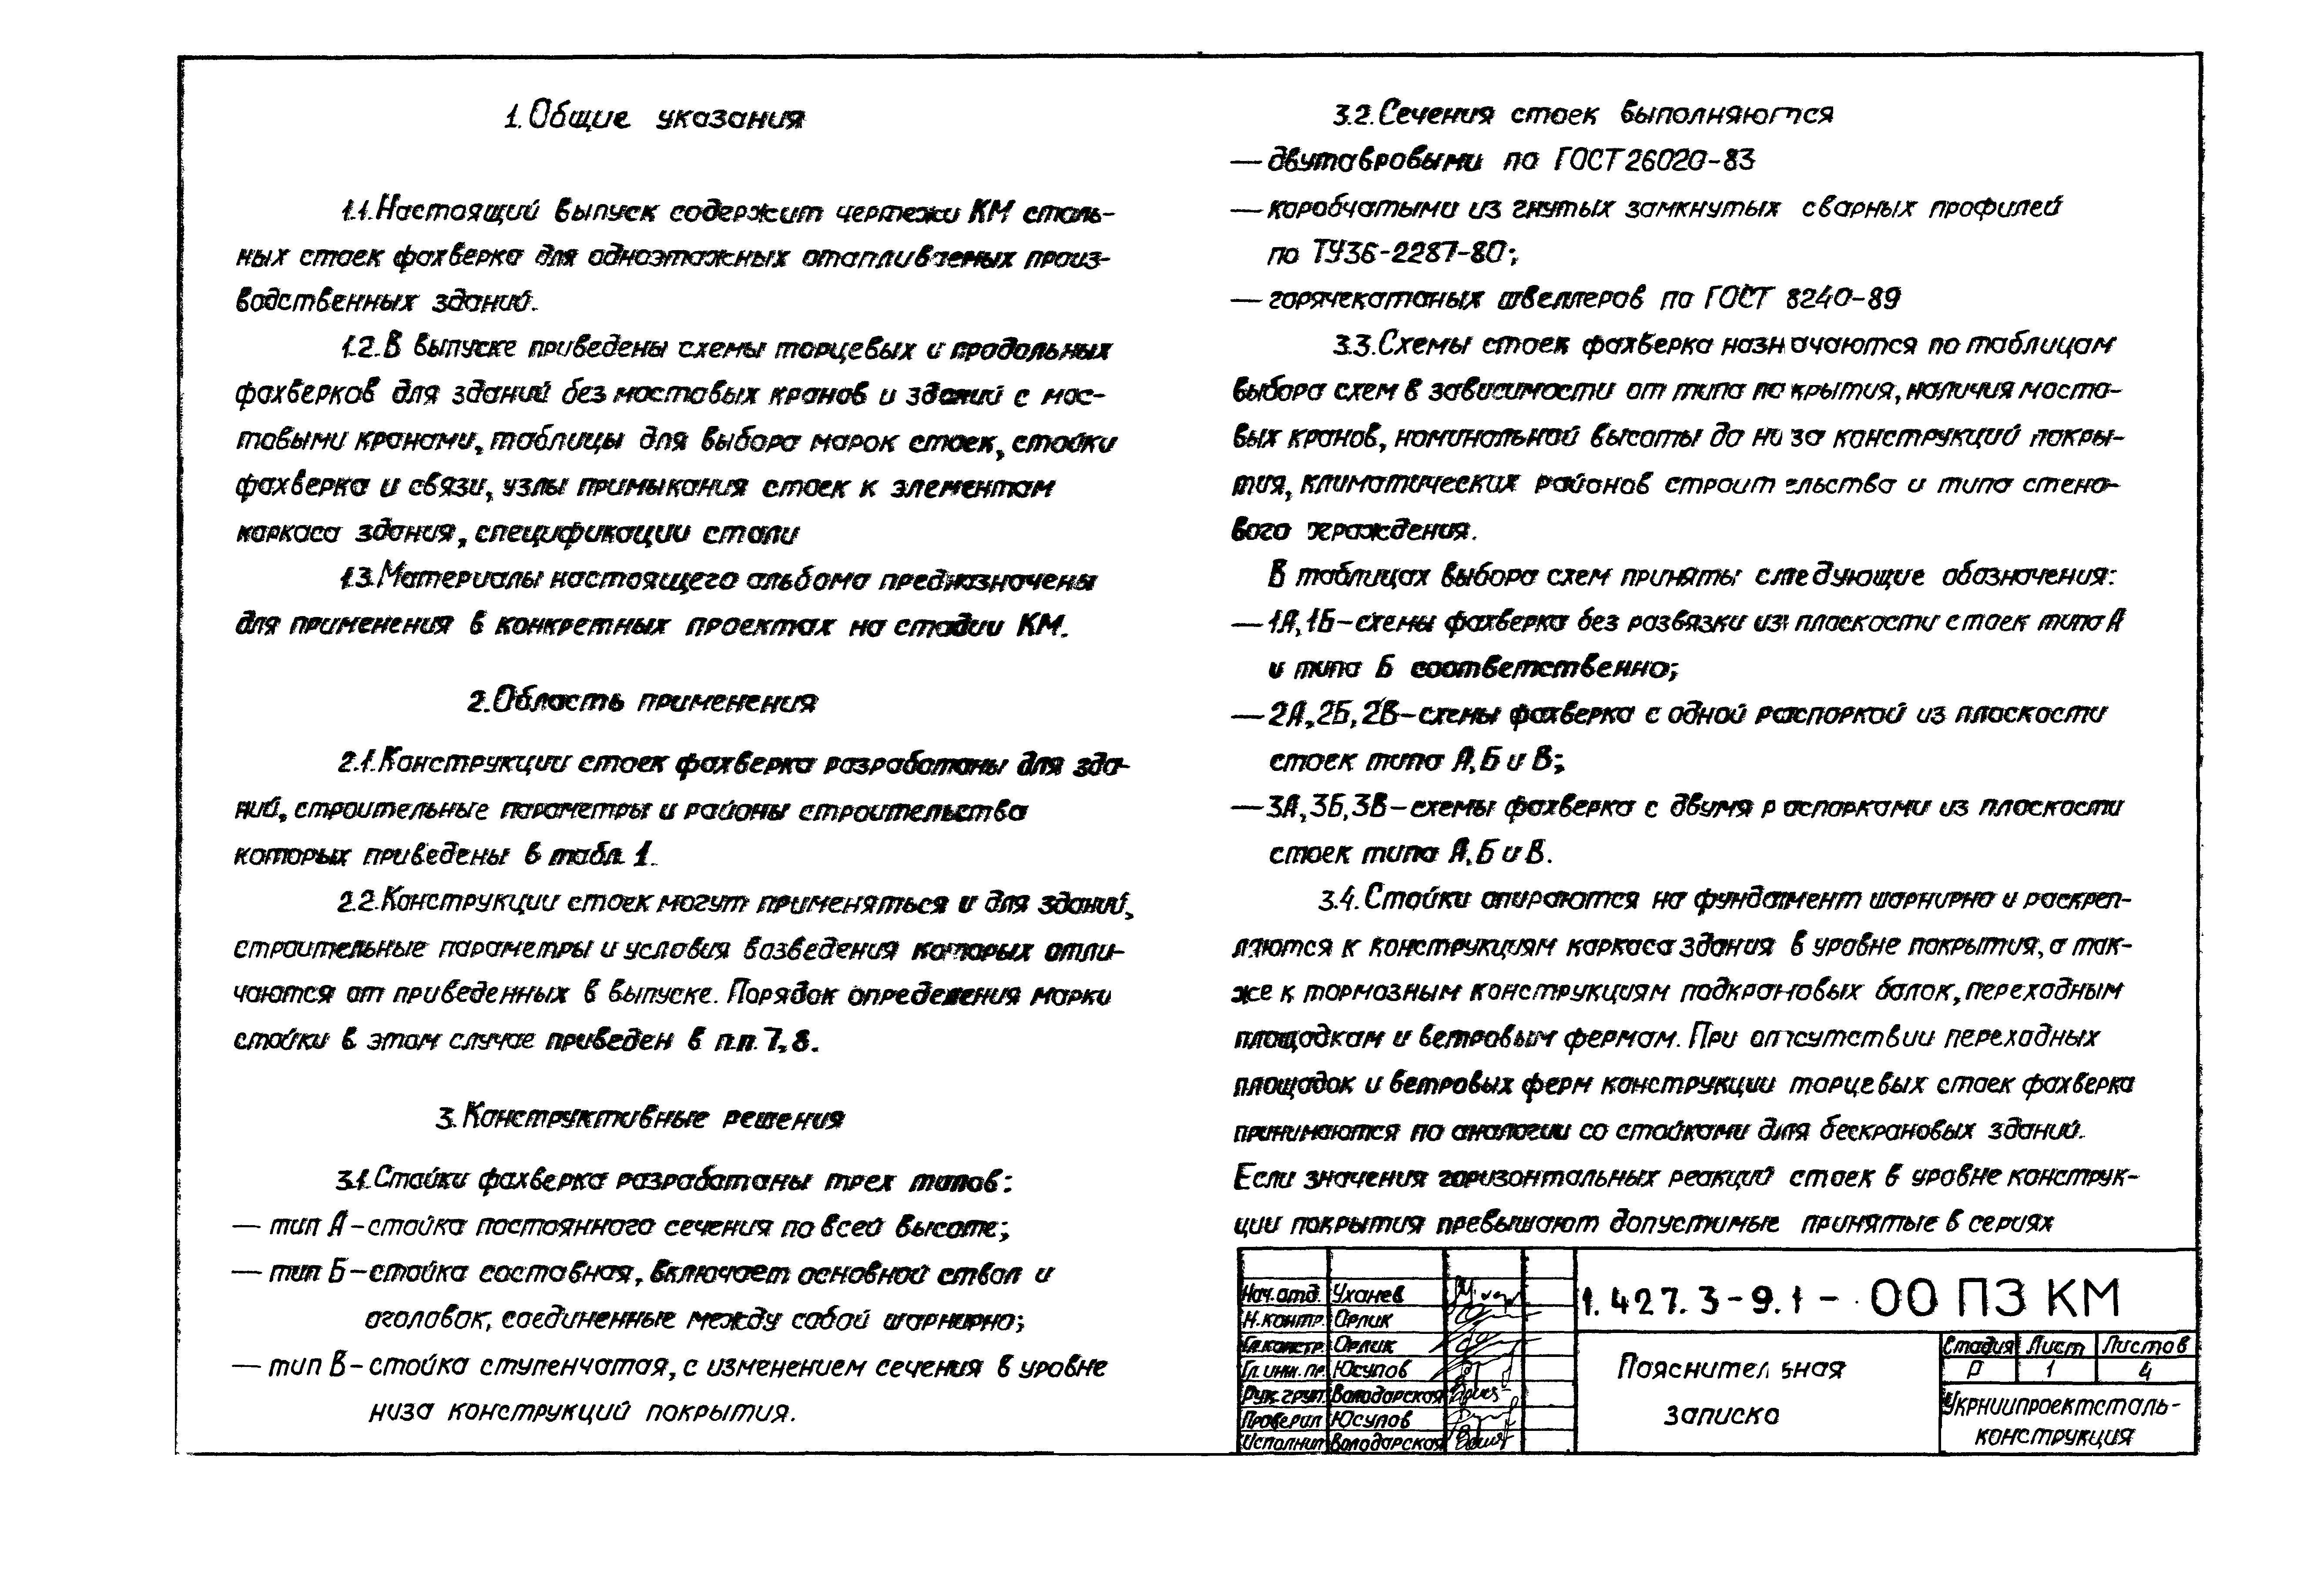 1. Общие указания
1.1. Настоящий выпуск содержит чертежи КМ сталь-
ных стоек фахверка для одноэтажных отапливаемых произ-
водственных зданий.
1.2. В выпуске приведены схемы торцевых и продольных
фахверков для зданий без мостовых кранов и зданий с мос-
товыми кранами, таблицы для выбора марок стоек, стойки
фахверка и связи, узлы примыкания стоек к элементам
каркаса здания, спецификации стали
1.3. Материалы настоящего альбома предназначены
для применения в конкретных проектах на стадии КМ.
2. Область применения
2.1. Конструкции стоек фахверка разработаны для зда-
ний, строительные параметры и районы строительства
которых приведены в табл 1.
2.2. Конструкции стоек могут применяться и для зданий,
строительные параметры и условия возведения которых отли-
чаются от приведенных в выпуске. Порядок определения марки
стойки в этом случае приведен в п.п. 7, 8.
3. Конструктивные решения
3.1. Стойки фахверка разработаны трех типов:
— тип А – стойка постоянного сечения по всей высоте;
— тип Б – стойка составная, включает основной ствол и
оголовок, соединенные между собой шарнирно;
— тип В – стойка ступенчатая, с изменением сечения в уровне
низа конструкций покрытия.
3.2. Сечения стоек выполняются
— двутавровыми по ГОСТ 26020-83
— коробчатыми из гнутых замкнутых сварных профилей
по ТУ36-2287-80;
— горячекатаных швеллеров по ГОСТ 8240-89
3.3. Схемы стоек фахверка назначаются по таблицам
выбора схем в зависимости от типа покрытия, наличия мосто-
вых кранов, номинальной высоты до низа конструкций покры-
тия, климатических районов строительства и типа стено-
вого ограждения.
В таблицах выбора схем приняты следующие обозначения:
— 1А, 1Б – схемы фахверка без развязки из плоскости стоек типа А
и типа Б соответственно;
— 2А, 2Б, 2В – схемы фахверка с одной распоркой из плоскости
стоек типа А, Б и В;
— 3А, 3Б, 3В – схемы фахверка с двумя распорками из плоскости
стоек типа А, Б и В.
3.4. Стойки опираются на фундамент шарнирно и раскреп-
ляются к конструкциям каркаса здания в уровне покрытия, а так-
же к тормозным конструкциям подкрановых балок, переходным
площадкам и ветровым фермам. При отсутствии переходных
площадок и ветровых ферм конструкции торцевых стоек фахверка
принимаются по аналогии со стойками для бескрановых зданий.
Если значения горизонтальных реакций стоек в уровне конструк-
ции покрытия превышают допустимые принятые в сериях
Нач. отд. Уханев
Н. контр. Орлик
Гл. констр. Орлик
Гл. инж. пр. Юсупов
Рук. груп. Володарская
Проверил Юсупов
Исполнит Володарская
1.427.3-9.1 - 00 ПЗ КМ
Пояснительная
записка
Стадия Лист Листов
Р 1 4
Укрниипроектсталь-
конструкция